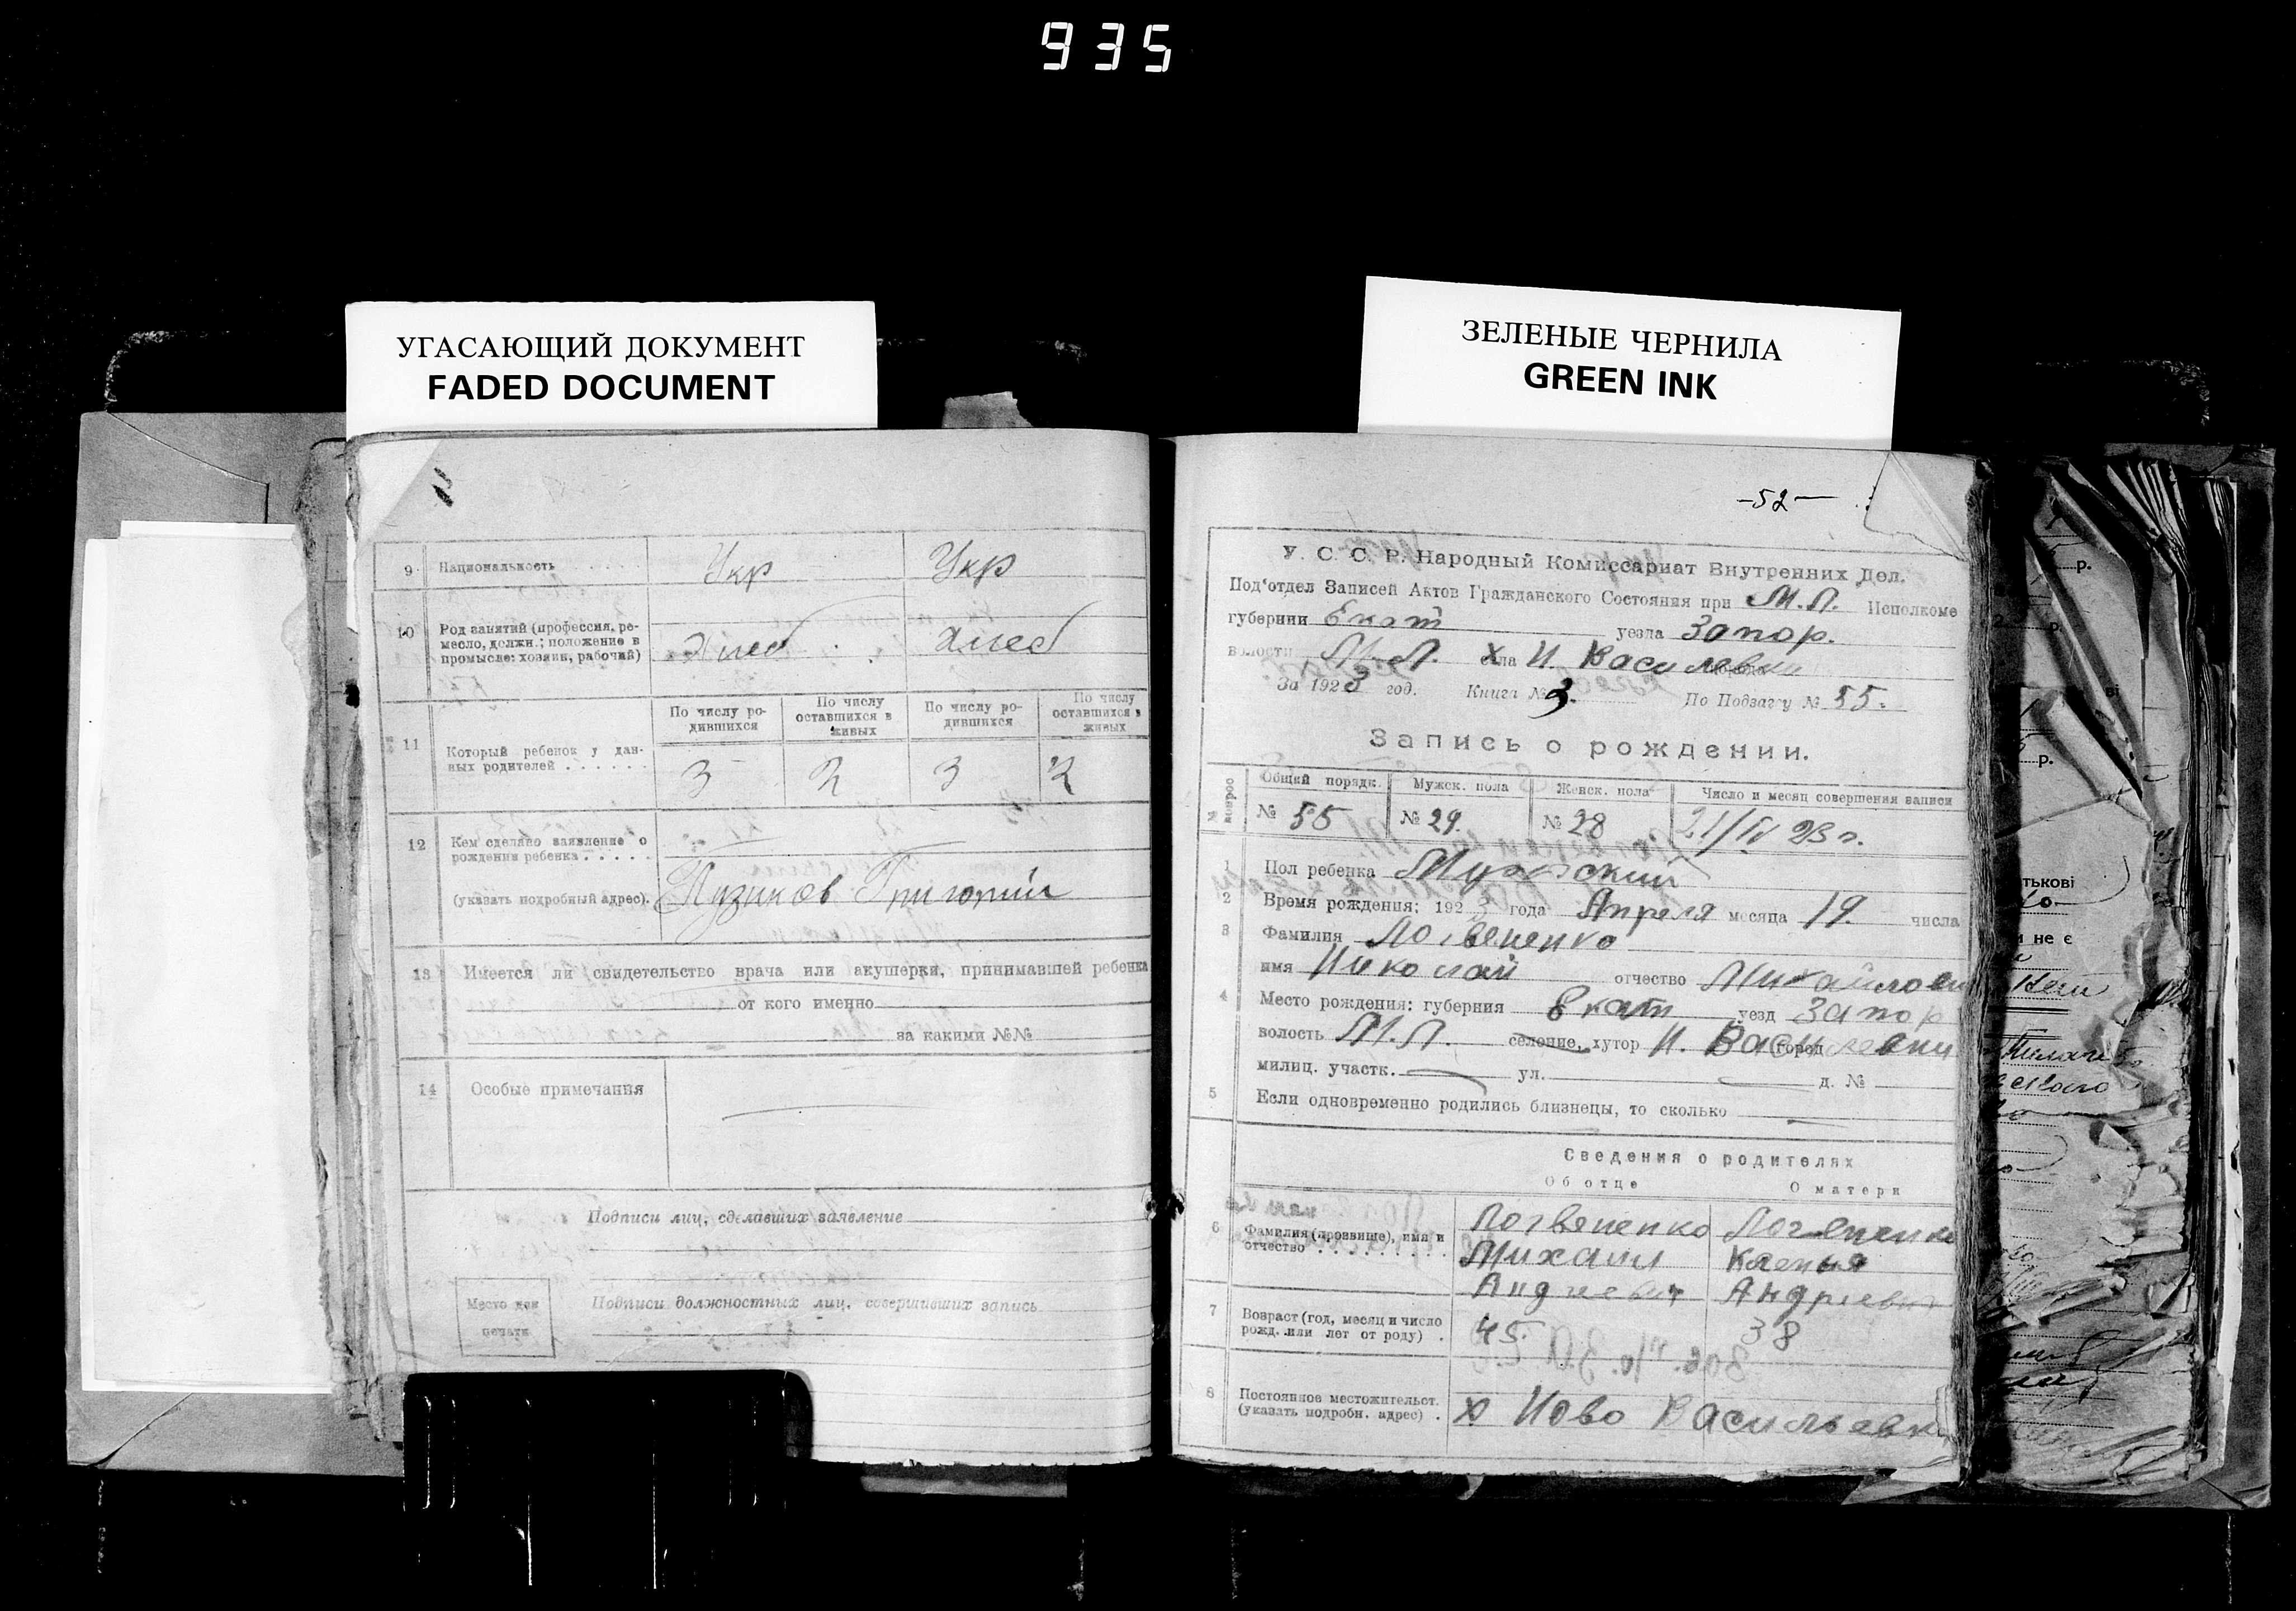 935
УГАСАЮЩИЙ ДОКУМЕНТ
FADED DOCUMENT
ЗЕЛЕНЫЕ ЧЕРНИЛА
GREEN INK
9 Национальность Укр Укр
10 Род занятий (профессия, ре-
месло, должн.; положение в
промысле: хозяин, рабочий) хлеб хлеб
11 Который ребенок у дан-
ных родителей
По числу ро-
дившихся
По числу
оставшихся в
живых
По числу ро-
дившихся
По числу
оставшихся в
живых
3 2 3 2
12 Кем сделано заявление о
рождении ребенка
(указать подробный адрес). Пузиков Григорий
13 Имеется ли свидетельство врача или акушерки, принимавшей ребенка
от кого именно
за какими №№
14 Особые примечания
Подписи лиц, сделавших заявление
Место для
печати
Подписи должностных лиц, совершивших запись
-52-
У. С. С. Р. Народный Комиссариат Внутренних Дел.
Под'отдел Записей Актов Гражданского Состояния при М.Л. Исполкоме
губернии Екат уезда Запор.
волости М.Л. х села Н. Василевки
За 1923 год. Книга № 3. По Подзагу № 55.
Запись о рождении.
№ вопрос
Общий порядк. Мужск. пола Женск. пола Число и месяц совершения записи
№ 55 № 29. № 28 21/IV 23 г.
1 Пол ребенка Мужской
2 Время рождения: 1923 года Апреля месяца 19. числа
3 Фамилия Логвененко
имя Николай отчество Михайлови
4 Место рождения: губерния Екат уезд Запор
волость М.Л. селение, хутор Н. Василевки город
милиц. участк. ул. д. №
5 Если одновременно родились близнецы, то сколько
Сведения о родителях
Об отце О матери
6 Фамилия (прозвище), имя и
отчество
Логвененко
Михаил
Андреевич
Ксенья
7 Возраст (год, месяц и число
рожд. или лет от роду) 45 38
8 Постоянное местожительст.
(указать подробн. адрес) х Ново Васильевк
р.
р.
р.
тькові
и не є